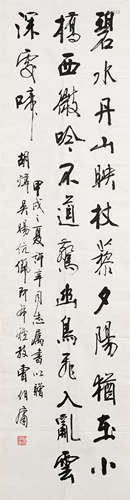 碧水丹山映杖藜夕陽猶在小
橋西微吟不道驚幽鳥飛入亂雲
深處啼
甲戌之夏許同志屬書以贈
胡煒吳伉曹伯庸